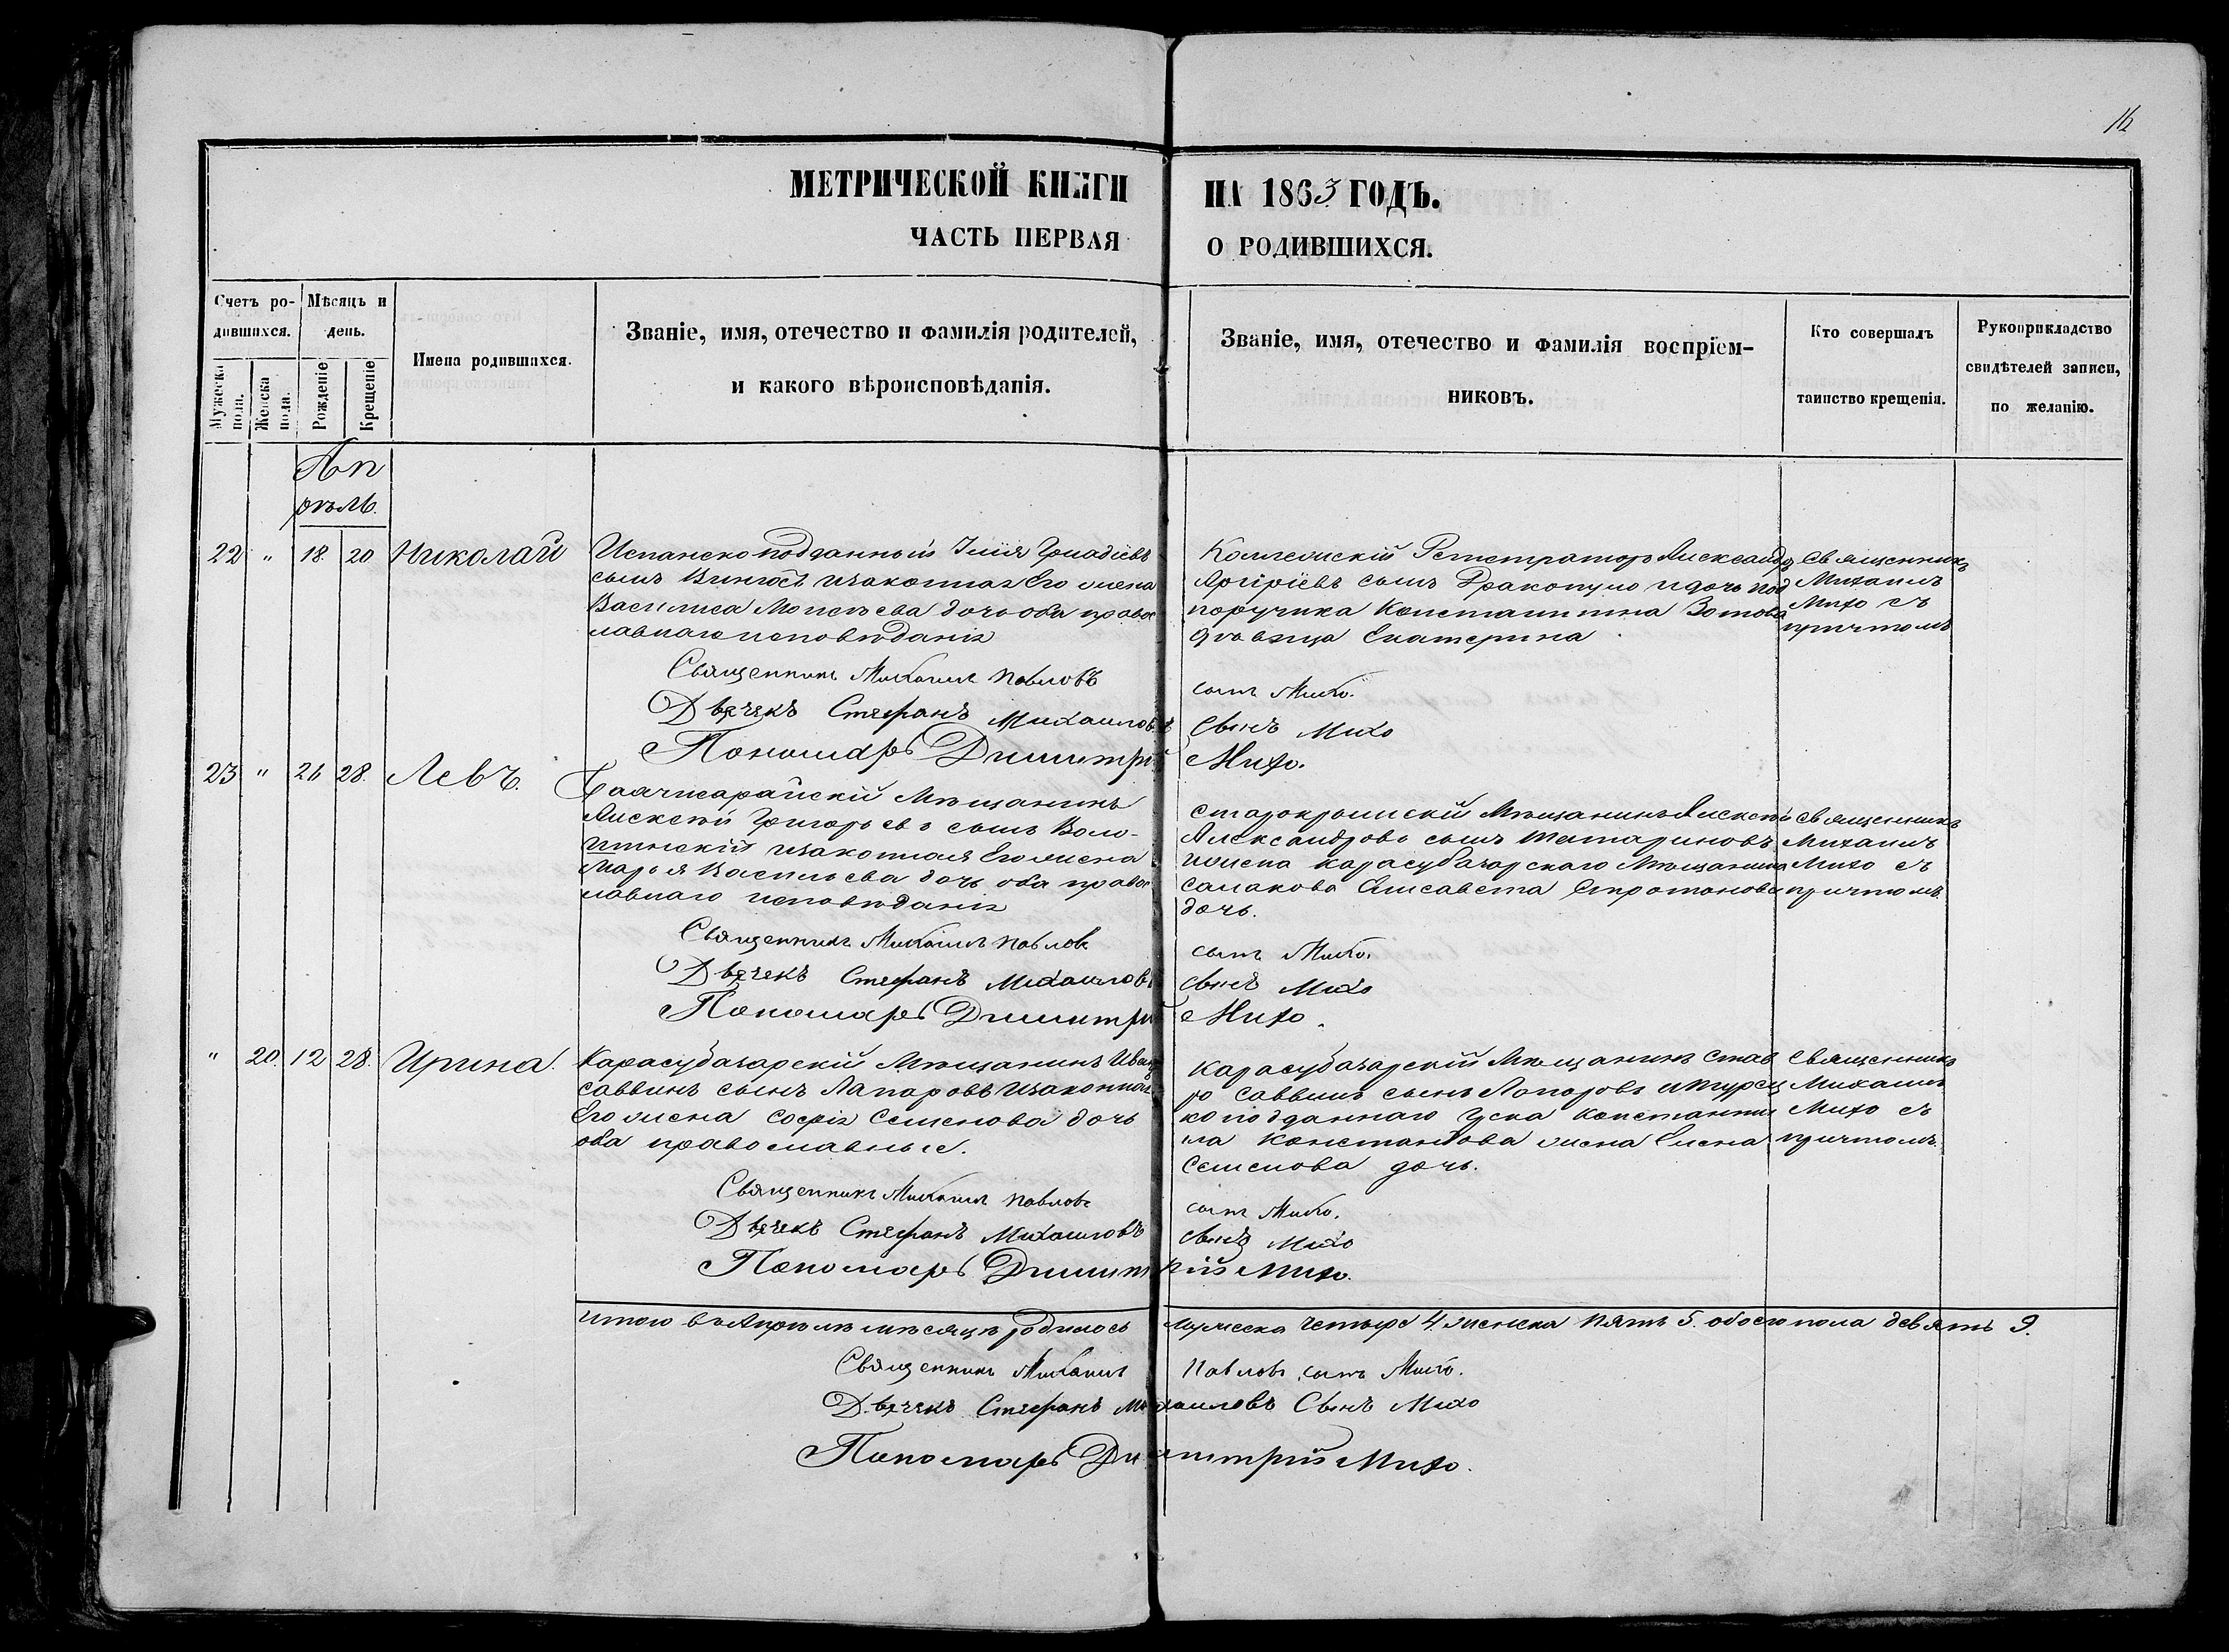 16
МЕТРИЧЕСКОЙ КНИГИ НА 1863 ГОДЪ.
ЧАСТЬ ПЕРВАЯ О РОДИВШИХСЯ.
Счетъ родившихся.
Мужеска пола.
Женска пола.
Мѣсяцъ и день.
Рожденіе
Крещеніе
Имена родившихся.
Званіе, имя, отечество и фамилія родителей,
и какого вѣроисповѣданія.
Званіе, имя, отечество и фамилія воспрiем-
никовъ.
Кто совершалъ
таинство крещенія.
Рукоприкладство
свидѣтелей записи,
по желанію.
Ап
рѣль.
22 " 18. 20 Николай
Испанскоподданный Илія
сынъ изаконная Его жена
Василиса Моисѣева дочь оба правос
лавнаго исповѣданія
Коллежскій Регистраторъ Александръ
сынъ Дракопуло идочь под
поручика Константина Зотова
дѣвица Екатерина
Священникъ
Михаилъ
Михо съ
причтомъ
Священникъ Михаилъ Павловъ сынъ Михо.
Дьячекъ Стефанъ Михаиловъ Сынъ Михо
Пономарь Димитрій Михо.
23 " 26 28. Левъ.
Бахчисарайскій Мѣщанинъ
Алексѣй Григорьевъ сынъ Воло-
шинскій изаконная Его жена
Марія Васильева дочь оба правос
лавнаго исповѣданія
старокрымскій Мѣщанинъ Алексѣй
Александровъ сынъ Шатариновъ
ижена карасубазарскаго Мѣщанина
Салакова Елисавета дочь.
Священникъ
Михаилъ
Михо съ
причтомъ.
Священникъ Михаилъ Павловъ сынъ Михо.
Дьячекъ Стефанъ Михаиловъ сынъ Михо
Пономарь Димитрій Михо.
" 20. 12 28. Ирина.
Карасубазарскій Мѣщанинъ Иванъ
Саввинъ сынъ Лапаровъ изаконная
Его жена Софія Семенова дочь
оба православные.
Карасубазарскій Мѣщанинъ Став
ро Саввинъ сынъ Лапаровъ иТурец
коподданнаго Константи
на Константова жена Елена
Семенова дочь.
Священникъ
Михаилъ
Михо съ
причтомъ.
Священникъ Михаилъ Павловъ сынъ Михо.
Дьячекъ Стефанъ Михаиловъ сынъ Михо
Пономарь Димитрій Михо.
Итого въ Апрѣлѣ мѣсяцѣ родилось мужеска четыре 4. женска пять 5. обоего пола девять 9.
Священникъ Михаилъ Павловъ сынъ Михо.
Дьячекъ Стефанъ Михаиловъ Сынъ Михо
Пономарь Димитрій Михо.